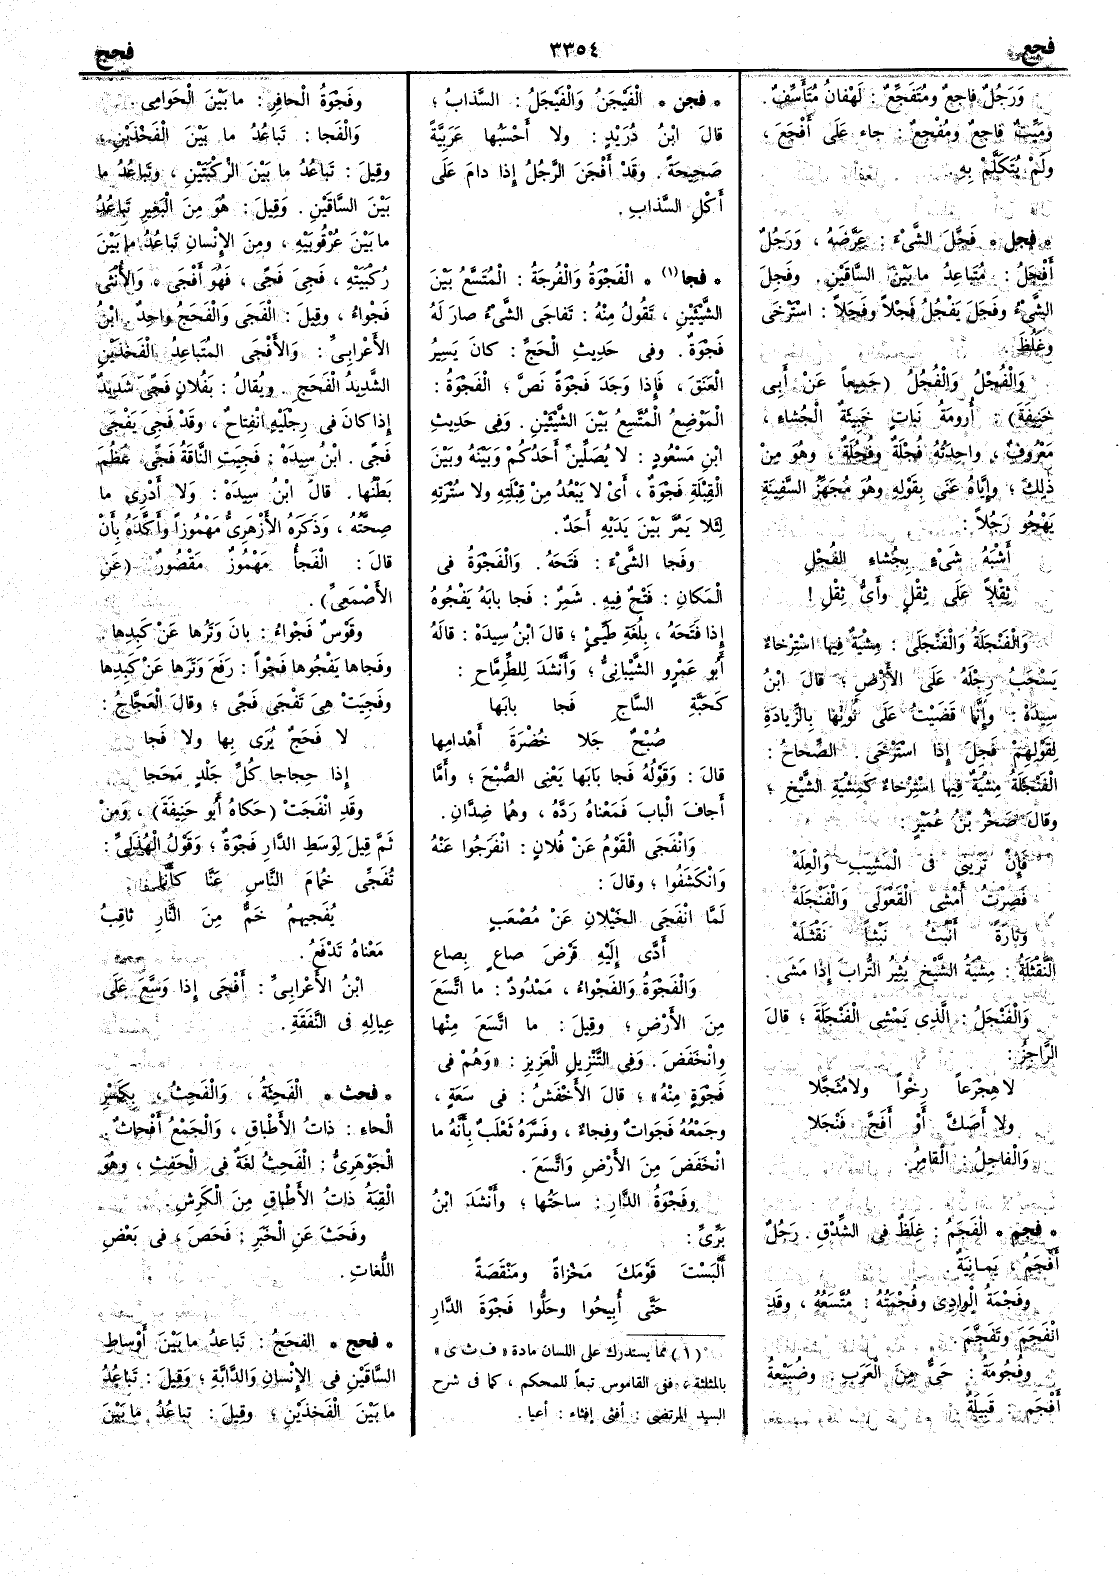 فجع
٣٣٥٤
فحج
وَرَجُلٌ فاجِعٌ ومُتَفَجِّعٌ : لَهْفانُ مُتَأَسِّفٌ .
ومَيِّتٌ فاجِعٌ ومُفْجِعٌ : جاء عَلَى أَفْجَعَ ،
ولَمْ يُتَكَلَّمْ بِهِ .
* فجل * فَجَّلَ الشَّىْءَ : عَرَّضَهُ ، وَرَجُلٌ
أَفْجَلُ : مُتَباعِدُ ما بَيْنَ السَّاقَيْنِ . وفَجِلَ
الشَّىْءُ وفَجَلَ يَفْجُلُ فَجْلاً وفَجَلاً : اسْتَرْخَى
وغَلُظَ .
وَالْفُجْلُ وَالْفُجُلُ (جَمِيعاً عَنْ أَبِى
حَنِيفَةَ) : أَرومَةُ نَباتٍ خَبِيثَةُ الْجُشاءِ ،
مَعْرُوفٌ ، واحِدَتُهُ فُجْلَةٌ وفُجُلَةٌ ، وهُوَ مِنْ
ذلِكَ ؛ وإيَّاهُ عَنَى بِقَوْلِهِ وهُوَ مُجَهِّزُ السَّفِينَةِ
يَهْجُو رَجُلاً :
أَشْبَهُ شَىْءٍ بِجُشاءِ الفُجْلِ
ثِقْلاً عَلَى ثِقْلٍ وأَىُّ ثِقْلِ !
وَالْفَنْجَلَةُ وَالْفَنْجَلَى : مِشْيَةٌ فِيها اسْتِرْخاءٌ
يَسْحَبُ رِجْلَهُ عَلَى الأَرْضِ ؛ قالَ ابْنُ
سِيدَهْ : وإنَّما قَضَيْتُ عَلَى نُونِها بِالزِّيادَةِ
لِقَوْلِهِمْ فَجِلَ إذا اسْتَرْخَى . الصِّحاحُ :
الْفَنْجَلَةُ مِشْيَةٌ فِيها اسْتِرْخاءٌ كَمِشْيَةِ الشَّيْخِ ؛
وقالَ صَخْرُ بْنُ عُمَيْرٍ :
فَإنْ تَرَيْنِى فى الْمَشِيبِ والْعِلَهْ
فَصِرْتُ أَمْشِى الْقَعْوَلَى وَالْفَنْجَلَهْ
وَتارَةً أَنْبُثُ نَبْثاً نَقْثَلَهْ
النَّقْثَلَةُ : مِشْيَةُ الشَّيْخِ يُثِيرُ التُّرابَ إذا مَشَى .
وَالْفَنْجَلُ : الَّذِى يَمْشِى الْفَنْجَلَةَ ؛ قالَ
الرَّاجِزُ :
لا هِجْرَعاً رِخْواً ولا مُثَجَّلا
ولا أَصَكَّ أَوْ أَفَجَّ فَنْجَلا
وَالْفاجِلُ : الْقامِرُ .
* فجم * الفَجَمُ : غِلَظٌ فى الشِّدْقِ . رَجُلٌ
أَفْجَمُ ، يَمانِيَةٌ .
وفَجْمَةُ الْوادِى وفُجْمَتُهُ : مُتَّسَعُهُ ، وقَدِ
انْفَجَمَ وتَفَجَّمَ .
وفُجُومَةُ : حَىٌّ مِنَ الْعَرَبِ . وضُبَيْعَةُ
أَفْجَمَ : قَبِيلَةٌ
* فجن * الْفَيْجَنُ وَالْفَيْجَلُ : السَّذابُ ؛
قالَ ابْنُ دُرَيْدٍ : ولا أَحْسَبُها عَرَبِيَّةً
صَحِيحَةً . وقَدْ أَفْجَنَ الرَّجُلُ إذا دامَ عَلَى
أَكْلِ السَّذابِ .
* فجا (١) * الْفَجْوَةُ وَالْفُرْجَةُ : الْمُتَّسَعُ بَيْنَ
الشَّيْئَيْنِ ، تَقُولُ مِنْهُ : تَفاجَى الشَّىْءُ صارَ لَهُ
فَجْوَةٌ . وفى حَدِيثِ الْحَجِّ : كانَ يَسِيرُ
الْعَنَقَ ، فَإذا وَجَدَ فَجْوَةً نَصَّ ؛ الْفَجْوَةُ :
الْمَوْضِعُ الْمُتَّسِعُ بَيْنَ الشَّيْئَيْنِ . وَفِى حَدِيثِ
ابْنِ مَسْعُودٍ : لا يُصَلِّيَنَّ أَحَدُكُمْ وَبَيْنَهُ وبَيْنَ
الْقِبْلَةِ فَجْوَةٌ ، أَىْ لا يَبْعُدُ مِنْ قِبْلَتِهِ ولا سُتْرَتِهِ
لِئَلا يَمُرَّ بَيْنَ يَدَيْهِ أَحَدٌ .
وفَجا الشَّىْءَ : فَتَحَهُ . وَالْفَجْوَةُ فى
الْمَكانِ : فَتْحٌ فِيهِ . شَمِرٌ : فَجا بابَهُ يَفْجُوهُ
إذا فَتَحَهُ ، بِلُغَةِ طَيِّئٍ ؛ قالَ ابْنُ سِيدَهْ : قالَهُ
أَبُو عَمْرٍو الشَّيْبانِىُّ ؛ وَأَنْشَدَ لِلطِّرِمَّاحِ :
كَحَبَّةِ السَّاجِ فَجا بابَها
صُبْحٌ جَلا خُضْرَةَ أَهْدامِها
قالَ : وَقَوْلُهُ فَجا بَابَها يَعْنِى الصُّبْحَ ؛ وأَمَّا
أَجافَ الْبابَ فَمَعْناهُ رَدَّهُ ، وهُما ضِدَّانِ .
وَانْفَجَى الْقَوْمُ عَنْ فُلانٍ : انْفَرَجُوا عَنْهُ
وَانْكَشَفُوا ؛ وقالَ :
لَمَّا انْفَجَى الْخَيْلانِ عَنْ مُصْعَبٍ
أَدَّى إلَيْهِ قَرْضَ صاعٍ بِصاعِ
وَالْفَجْوَةُ وَالفَجْواءُ ، مَمْدُودٌ : ما اتَّسَعَ
مِنَ الأَرْضِ ؛ وقِيلَ : ما اتَّسَعَ مِنْها
وانْخَفَضَ . وَفِى التَّنْزِيلِ الْعَزِيزِ : «وَهُمْ فى
فَجْوَةٍ مِنْهُ» ؛ قالَ الأَخْفَشُ : فى سَعَةٍ ،
وجَمْعُهُ فَجَواتٌ وفِجاءٌ ، وفَسَّرَهُ ثَعْلَبٌ بِأَنَّهُ ما
انْخَفَضَ مِنَ الأَرْضِ وَاتَّسَعَ .
وفَجْوَةُ الدَّارِ : ساحَتُها ؛ وأَنْشَدَ ابْنُ
بَرِّىّ :
أَلْبَسْتَ قَوْمَكَ مَخْزاةً ومَنْقَصَةً
حَتَّى أُبِيحُوا وحَلُّوا فَجْوَةَ الدَّارِ
(١) مما يستدرك على اللسان مادة « ف ث ى »
بالمثلثة ، ففى القاموس تبعاً للمحكم ، كما فى شرح
السيد المرتضى : أفثى إفثاء : أعيا .
وفَجْوَةُ الْحافِرِ : ما بَيْنَ الْحَوامِى .
وَالْفَجا : تَباعُدُ ما بَيْنَ الْفَخْذَيْنِ ،
وقِيلَ : تَباعُدُ ما بَيْنَ الرُّكْبَتَيْنِ ، وتَباعُدُ ما
بَيْنَ السَّاقَيْنِ . وَقِيلَ : هُوَ مِنَ الْبَعِيرِ تَباعُدُ
ما بَيْنَ عُرْقُوبَيْهِ ، ومِنَ الإنْسانِ تَباعُدُ ما بَيْنَ
رُكْبَتَيْهِ ، فَجِىَ فَجًى ، فَهُوَ أَفْجَى ، وَالأُنْثَى
فَجْواءُ ، وقِيلَ : الْفَجَى وَالْفَحَجُ واحِدٌ . ابْنُ
الأَعْرابِىِّ : وَالأَفْجَى الْمُتَباعِدُ الْفَخْذَيْنِ
الشَّدِيدُ الْفَحَجِ . ويُقالُ : بِفُلانٍ فَجًى شَدِيدٌ
إذا كانَ فى رِجْلَيْهِ انْفِتاحٌ ، وقَدْ فَجِىَ يَفْجَى
فَجًى . ابْنُ سِيدَهْ : فَجِيَتِ النَّاقَةُ فَجًى عَظُمَ
بَطْنُها . قالَ ابْنُ سِيدَهْ : وَلا أَدْرِى ما
صِحَّتُهُ ، وَذَكَرَهُ الأَزْهَرِىُّ مَهْمُوزاً وأَكَّدَهُ بِأَنْ
قالَ : الْفَجَأُ مَهْمُوزٌ مَقْصُورٌ (عَنِ
الأَصْمَعِىِّ) .
وقَوْسٌ فَجْواءُ : بانَ وَتَرُها عَنْ كَبِدِها .
وفَجاها يَفْجُوها فَجْواً : رَفَعَ وَتَرَها عَنْ كَبِدِها
وفَجِيَتْ هِىَ تَفْجَى فَجًى ؛ وقالَ الْعَجَّاجُ :
لا فَحَجٌ يُرَى بِها ولا فَجا
إذا حِجاجا كُلِّ جَلْدٍ مَحَجا
وقَدِ انْفَجَتْ (حَكاهُ أَبُو حَنِيفَةَ) ، وَمِنْ
ثَمَّ قِيلَ لِوَسَطِ الدَّارِ فَجْوَةٌ ؛ وَقَوْلُ الْهُذَلِىِّ :
تُفَجِّى خُمامَ النَّاسِ عَنَّا كَأَنَّما
يُفَجِّيهِمُ خَمٌّ مِنَ النَّارِ ثاقِبُ
مَعْناهُ تَدْفَعُ .
ابْنُ الأَعْرابِىِّ : أَفْجَى إذا وَسَّعَ عَلَى
عِيالِهِ فى النَّفَقَةِ .
* فحث * الْفَحِثَةُ ، وَالْفَحِثُ ، بِكَسْرِ
الْحاءِ : ذاتُ الأَطْباقِ ، وَالْجَمْعُ أَفْحاثٌ .
الْجَوْهَرِىُّ : الْفَحِثُ لُغَةٌ فى الْحَفِثِ ، وهُوَ
الْقِبَةُ ذاتُ الأَطْباقِ مِنَ الْكَرِشِ .
وفَحَثَ عَنِ الْخَبَرِ : فَحَصَ ، فى بَعْضِ
اللُّغاتِ .
* فحج * الفَحَجُ : تَباعُدُ ما بَيْنَ أَوْساطِ
السَّاقَيْنِ فى الإنْسانِ وَالدَّابَّةِ ؛ وَقِيلَ : تَباعُدُ
ما بَيْنَ الْفَخْذَيْنِ ؛ وقِيلَ : تَباعُدُ ما بَيْنَ